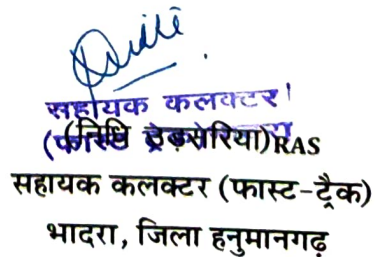 सहायक कलक्टर
(निधि उड़सरिया) RAS
सहायक कलक्टर (फास्ट-ट्रैक)
भादरा, जिला हनुमानगढ़